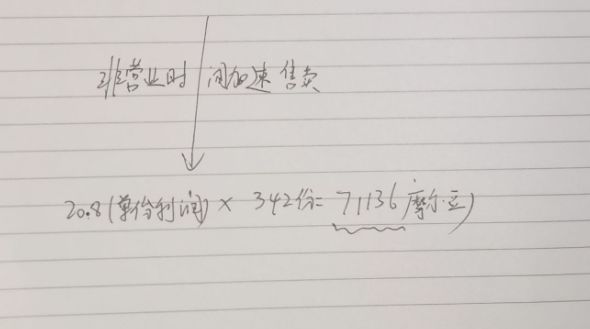 非营业时间加速售卖
20.8(单份利润) × 342份= 71136摩尔豆)